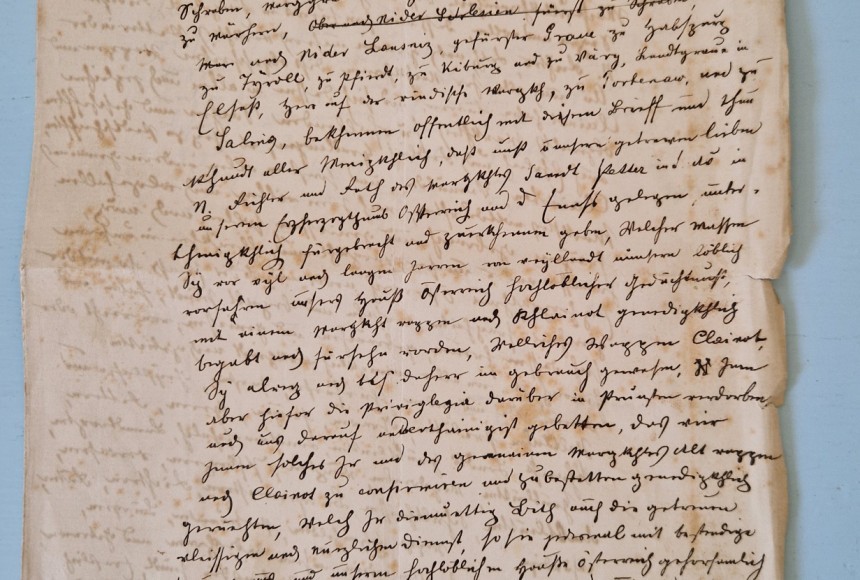 Schwaben, Marggra
zu Märhern, Ober und Nider Lausiz fürst zu Schwaben,
Ober und Nider Lausniz, gefürster Grave zu Habspurg
zu Tÿroll, zu Phierdt, zu Kiburg und zu Görz, Landtgrave in
Elsaß, Herr auf der windischen Margkh, zu Porttenaw und zu
Salins, bekhennen offentlich mit disem Brieff und thun
Khundt aller Menigkhlich, daß unß unsere getrewen lieben
N. Richter und Rath des Margkhtes Sandt Petter in der Au in
unserem Erzherzogthumb Österreich ob d Ennß gelegen, under-
thenigkhlich fürgebracht und zuerkhennen geben, Welcher Massen
Sÿ vor vÿl und langen Jaren von weÿllandt unsern löblich
vorfahren unsers Hauß Österreich hochloblicher Gedächtnuß,
mit einem Margkht wappen und Khlainot genedigkhlich
begabt und fürsehn worden, Welliches Wappen Clainot,
Sÿ alweg und biß daherr in gebrauch gewesen, Inen
aber hiefor die Priviglegia darüber in Prunsten verdorben,
und uns darauf underthainigist gebetten, das wir
Inen solches Ir und des gemainen Margkhtes Alt wappen
und Clainot zu confermiren und zubestetten genedigkhlich
geruechten, Welch Ir diemuettig Bith auch die getreuen
vleissigen und nuzlichen Dienst, so sie jederzeit mit bestendige
und unserem hochloblichen Hauße Österreich gehorsamlich